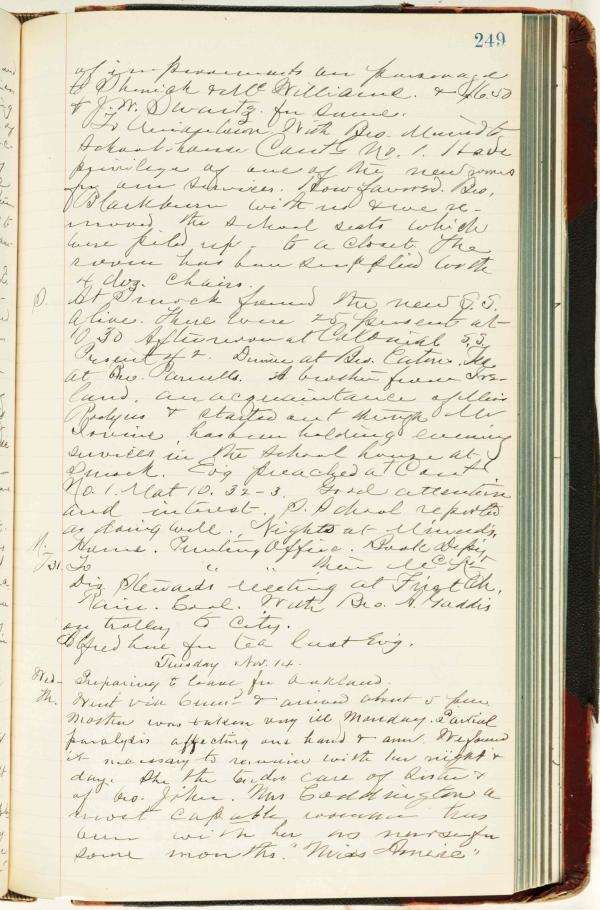 249
of improvements on parsonage
to & Mc Williams. & 16.50
& J. W. Swartz for same.
To with Bro. to
School-house Cont. No. 1. Have
privilege of one of the new rooms
for our services. How favored. Bro.
Blackburn with us & we re-
moved the school seats which
were piled up - to a closet. The
room has been supplied with
4 doz. chairs.
S. At Smock found the new S.S.
alive. There were 25 present at
9 30 Afternoon at Colonial S.S.
Present 42. Dinner at Bro. Eaton. Tea
at Bro. Parnells. A brother from Ire-
land, an acquaintance of Miss
& started out through Mr
Irvine, has been holding evening
services in the School house at
Smock. Evg preached at Cont
No. 1. Mat 10. 32-3. Good attention
and interest. S. School reported
as doing well. Night at
M. Home. Printing Office. Book Depis.
T 31. To " "
Dis. Stewards meeting at First Ch.
Rain. Cool. With Bro. A. Gaddis
on trolley to City.
Alfred here for tea last Evg.
Tuesday Nov. 14.
Wed- Preparing to leave for Oakland.
Th. Went via & arrived about 5 p.m.
Mother was taken very ill Monday. Partial
paralysis affecting one hand & arm. We found
it necessary to remain with her night &
day. She the tender care of Sister &
of bro. John. Mrs Coddington a
most capable woman has
been with her as nurse for
some months. "Miss "